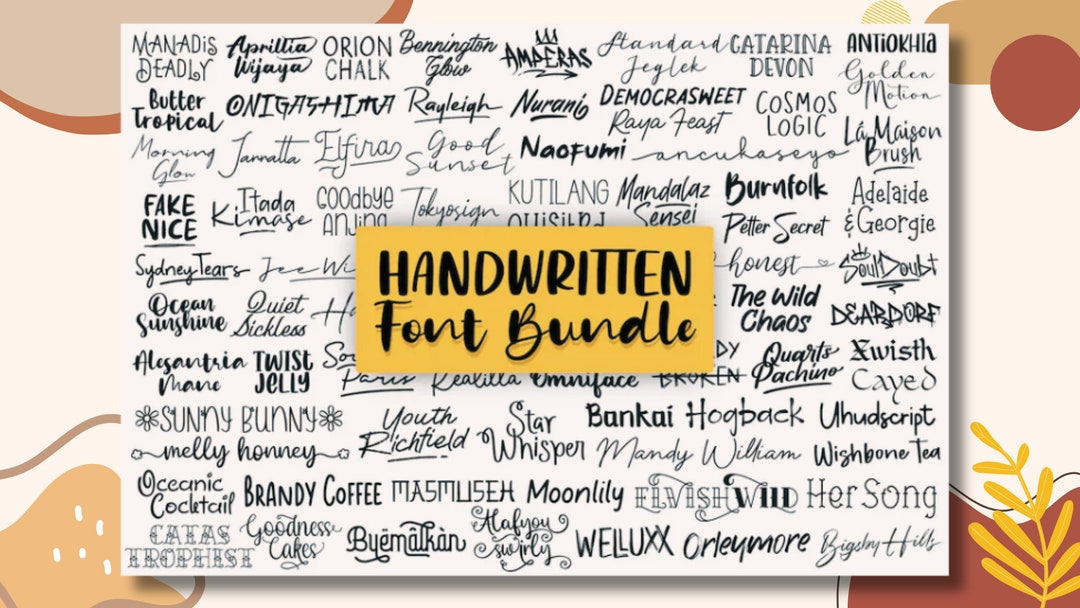 MANADIS DEADLY
Aprillia Wijaya
ORION CHALK
Bennington Glow
AMPERAS
Standard Jeglek
CATARINA DEVON
ANTIOKHIA
Golden Motion
Butter Tropical
ONIGASHIMA
Rayleigh
Nurani
DEMOCRASWEET
Raya Feast
COSMOS LOGIC
La Maison Brush
Morning Glow
Jannatta
Elfira
Good Sunset
Naofumi
ancukaseyo
FAKE NICE
Itada Kimase
Goodbye Anjing
Tokyosign
KUTILANG
Mandalaz Sensei
Burnfolk
Petter Secret
Adelaide & Georgie
Sydney Tears
Jee Wi
honest
Soul Doubt
HANDWRITTEN
Font Bundle
Ocean Sunshine
Quiet Sickless
The Wild Chaos
DEARDORF
Alesantria Mane
TWIST JELLY
Paris
Realitta
Omniface
BROKEN
Quarts Pachino
Xwisth
Cayed
SUNNY BUNNY
Youth Richfield
Star Whisper
Bankai
Hogback
Uhudscript
melly honney
Mandy William
Wishbone Tea
Oceanic Cocktail
BRANDY COFFEE
MASMUSEH
Moonlily
ELVISH WILD
Her Song
CATAS TROPHIST
Goodness Cakes
Byëmätkàn
Alafyou swirly
WELLUXX
Orleymore
Bigsby Hills